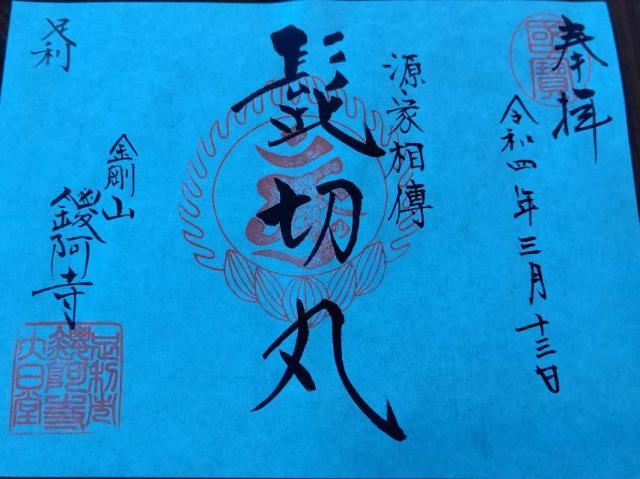 奉拝
國寶
令和四年三月十三日
源家相傳
髭切丸
足利
金剛山
鑁阿寺
足利市
鑁阿寺
大日堂